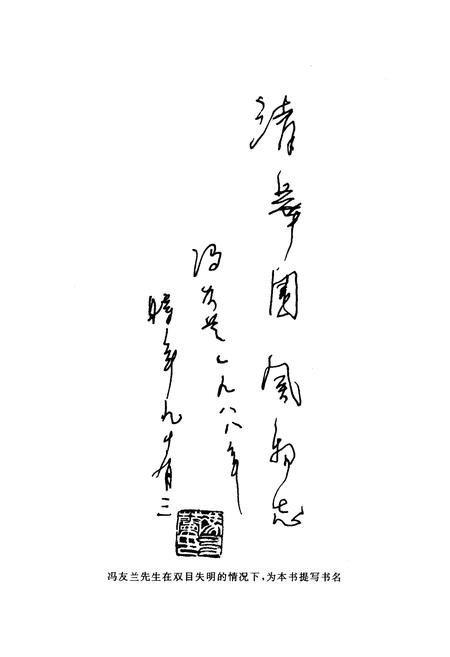 清華園風物志
冯友兰一九八八年
時年九十有三
馮友蘭
冯友兰先生在双目失明的情况下，为本书提写书名